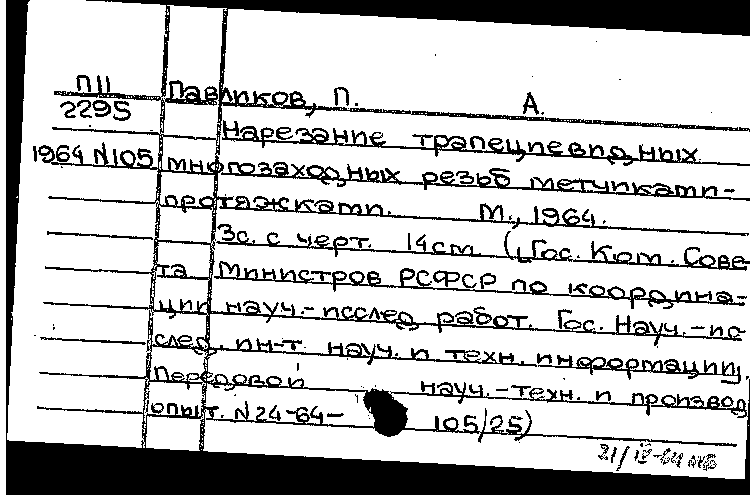 П11 Павликов, П. А.
2295
Нарезание трапецпевпдных
1964 N105 многозаходных резьб метчпкамп-
протяжкамп. М., 1964.
3с. с черт. 14см. (Гос. Ком. Сове-
та Министров РСФСР по координа-
ции науч.-исслед. работ. Гос. Науч.-ис
след. ин-т. науч. и техн. информации.
Передовой науч.-техн. и производ
опыт. N24-64- 105/25)